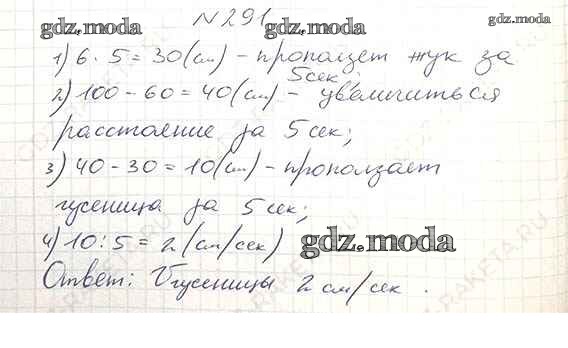 №291
gdz.moda gdz.moda gdz.moda
1) 6 · 5 = 30 (см) – прополzет жук за
5 сек;
2) 100 – 60 = 40 (см) – увеличиться
расстояние за 5 сек;
3) 40 – 30 = 10 (см) – проползает
гусеница за 5 сек;
4) 10 : 5 = 2 (см/сек)
gdz.moda
Ответ: V гусеницы 2 см/сек.